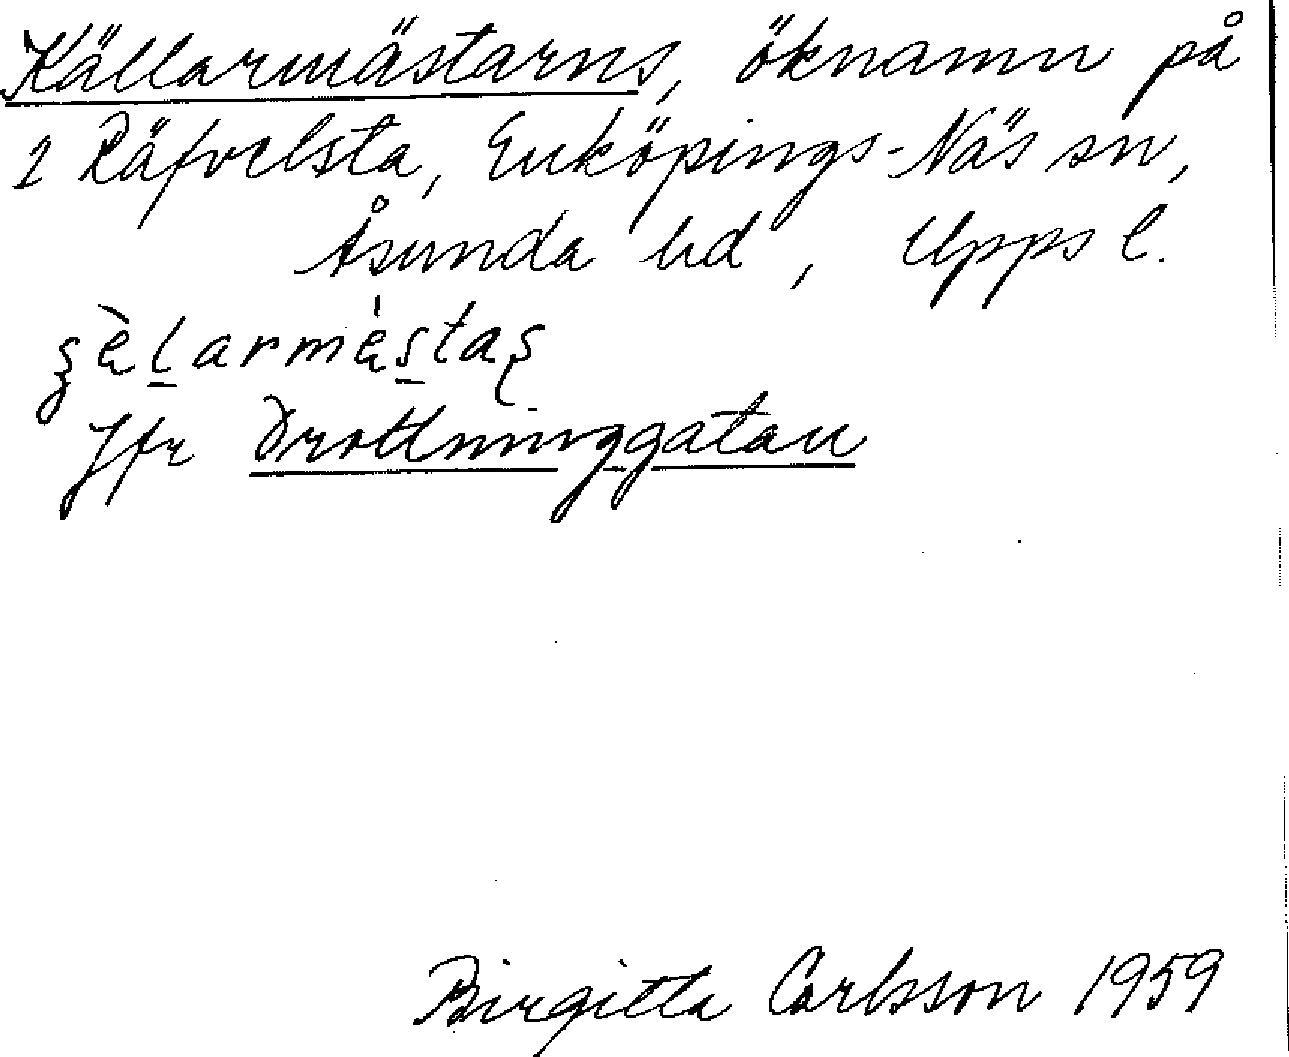 Källarmästarns, öknamn på
2 Räfvelsta, Enköpings-Näs sn,
Åsunda hd, Upps l.
Jfr Drottninggatan
Birgitta Carlsson 1959